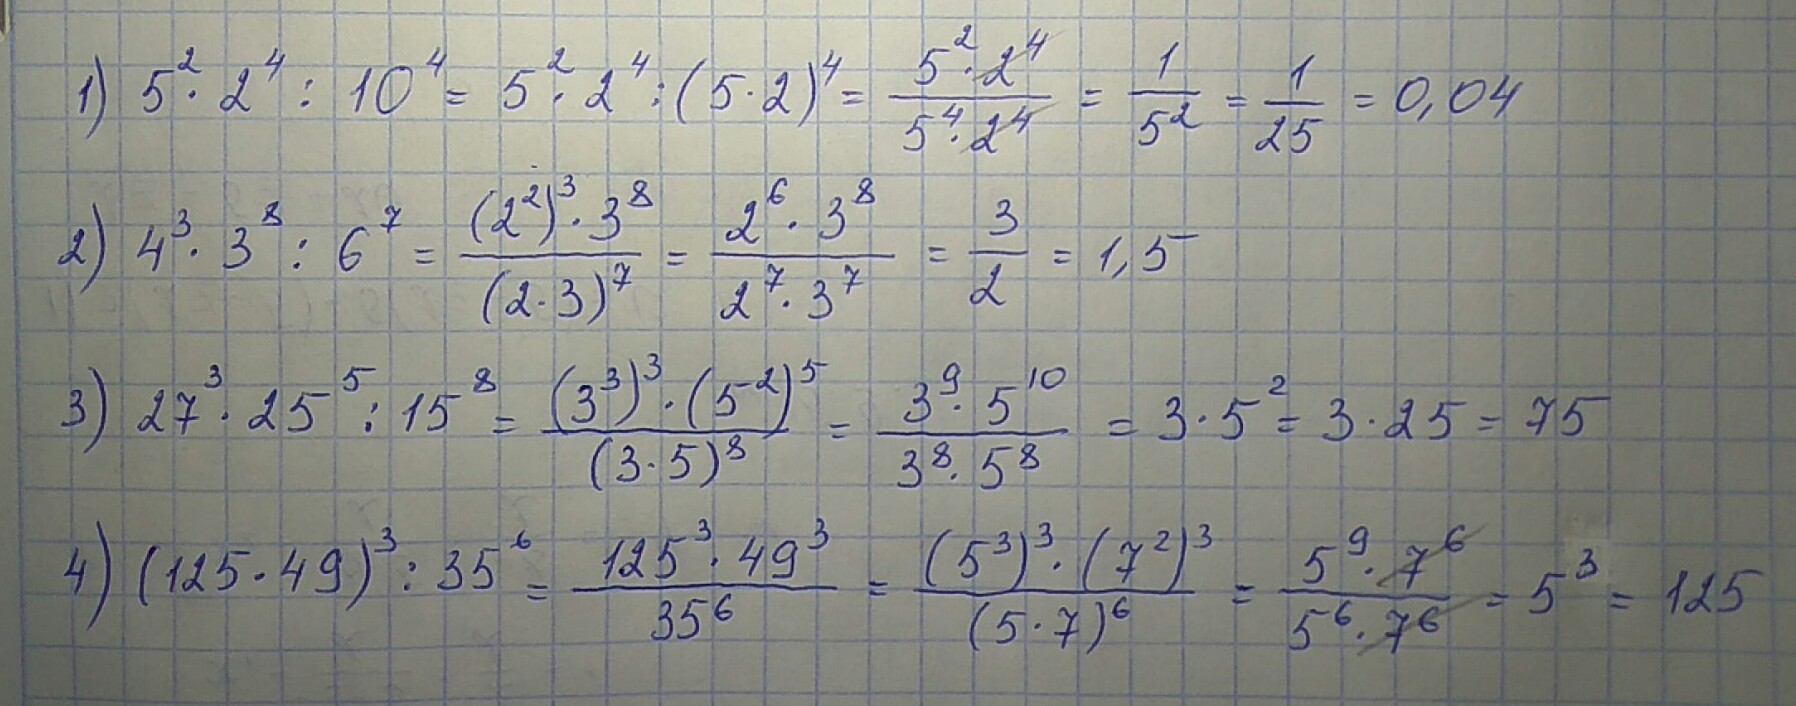 1) 5² · 2⁴ : 10⁴ = 5² · 2⁴ : (5 · 2)⁴ = (5² · 2⁴)/(5⁴ · 2⁴) = 1/5² = 1/25 = 0,04
2) 4³ · 3⁸ : 6⁷ = ((2²)³ · 3⁸)/((2 · 3)⁷) = (2⁶ · 3⁸)/(2⁷ · 3⁷) = 3/2 = 1,5
3) 27³ · 25⁵ : 15⁸ = ((3³)³ · (5²)⁵)/((3 · 5)⁸) = (3⁹ · 5¹⁰)/(3⁸ · 5⁸) = 3 · 5² = 3 · 25 = 75
4) (125 · 49)³ : 35⁶ = (125³ · 49³)/35⁶ = ((5³)³ · (7²)³)/((5 · 7)⁶) = (5⁹ · 7⁶)/(5⁶ · 7⁶) = 5³ = 125